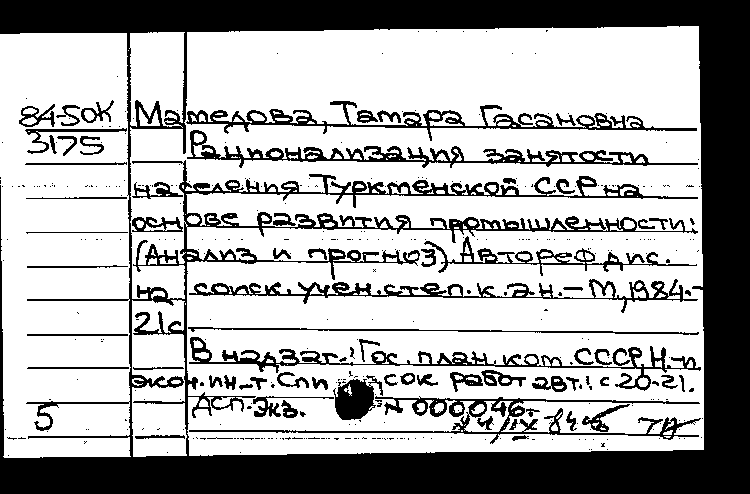 84-5ОК Маmедова, Таmара Гасановна
3175 Рационализация занятости
населения Туркmенской ССР на
основе развития проmышленности:
(Анализ и прогноз). Автореф дис.
на соиск. учен. степ. к.э.н. – М, 1984. –
21с.
В надзаг.: Гос. план. коm. СССР, Н.-и.
экон. ин-т. Список работ авт.: с. 20-21.
ДСП. Экз. N 000046.
5 24/IX-84